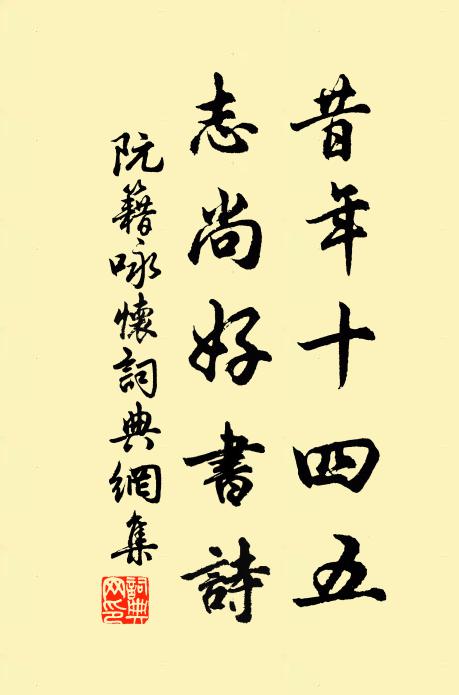 昔年十四五
志尚好書詩
阮籍咏懷詞典網集
詞典網印